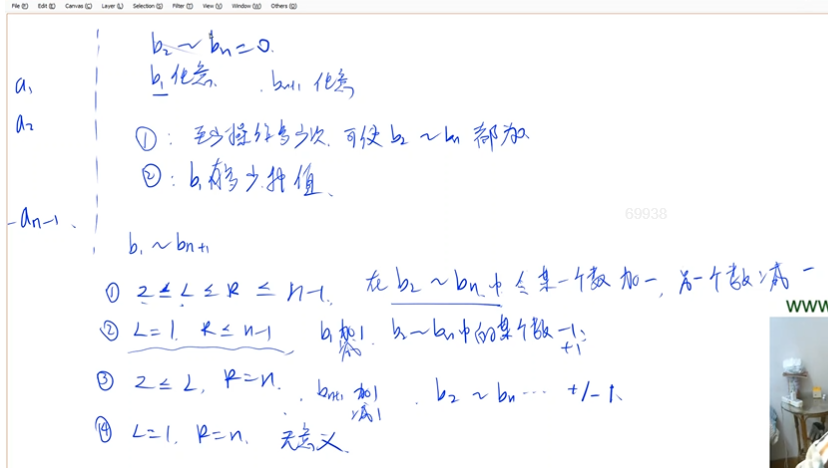 File(F) Edit(E) Canvas(C) Layer(L) Selection(S) Filter(T) View(V) Window(W) Others(O)
b₂ ~ bₙ = 0.
b₁ 任意. bₙ₊₁ 任意
a₁
a₂
①: 至少操作多少次. 可使 b₂ ~ bₙ 都为0
②: b₁ 有多少种值.
-aₙ₋₁.
69938
b₁ ~ bₙ₊₁
① 2 ≤ L ≤ R ≤ n-1. 在 b₂ ~ bₙ 中 令某一个数加一, 另一个数减一
www
② L=1. R ≤ n-1 b₁ 加1 减 . b₂ ~ bₙ 中的某个数 -1; +1
③ 2 ≤ L, R=n. bₙ₊₁ 加1 减1 . b₂ ~ bₙ ... +/-1.
④ L=1. R=n. 无意义.